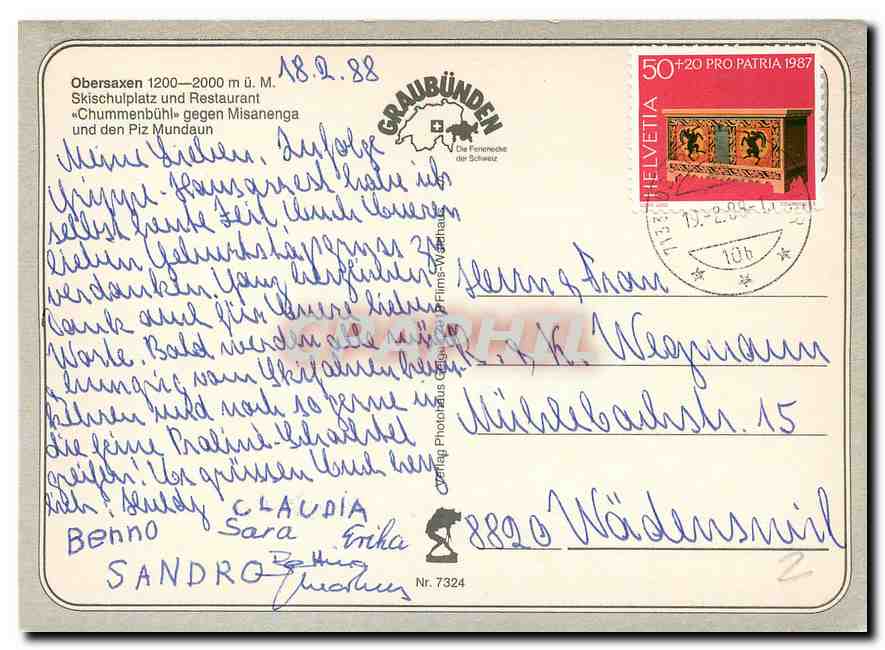 18.2.88
Obersaxen 1200—2000 m ü. M.
Skischulplatz und Restaurant
«Chummenbühl» gegen Misanenga
und den Piz Mundaun
GRAUBÜNDEN
Die Ferienecke
der Schweiz
50+20 PRO PATRIA 1987
HELVETIA
19.-2.88-1
10b
Meine Lieben, Zufolge
Grippe-Hausarrest habe ich
selbst heute Zeit Euch Eueren
lieben Geburtstagsgruss zu
verdanken. Ganz herzlichen
Dank auch für Euere lieben
Worte. Bald werden alle müde
& hungrig vom Skifahren heim
kehren und noch so gerne in
die feine Praliné-Schachtel
greifen! Es grüssen Euch herz
lich: Huldy CLAUDIA
Benno Sara Erika
SANDRO Bettina
Markus
Verlag Photohaus Geiger 7018 Flims-Waldhaus
Herrn & Frau
E. & K. Wegmann
Mühlebachstr. 15
8820 Wädenswil
Nr. 7324
2
CPAPHIL